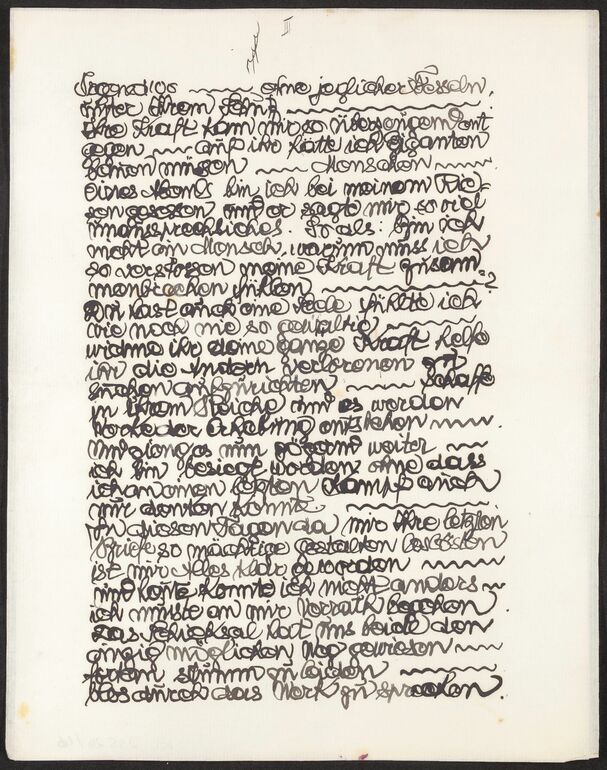 III
ohne jeglicher Fesseln,
hinter Ihrem
Ihre Kraft kam mir so
gegen — auf ihr hätte ich Giganten
können müssen — Menschen —
Eines Abends bin ich bei meinem
gesessen und er sagte mir so viel
unaussprechliches. So als: bin ich
nicht ein Mensch, warum muss ich
so meine Kraft zusam-
menbrechen fühlen — ?
Du hast auch eine Seele fühlte ich
wie noch nie so gewaltig —
widme ihr deine ganze Kraft helfe
ihr die andern Verlorenen
suchen aufzurichten — Schaffe
in Ihrem Reiche und es werden
Werke der entstehen —
Und gieng es nun weiter —
ich bin besiegt worden ohne dass
ich an einen letzten Kampf auch
nur denken konnte —
In diesen Tagen da mir Ihre letzten
Briefe so mächtige Gestalten
ist mir Alles klar geworden —
und heute konnte ich nicht anders —
ich musste an mir Verrath begehen
Das Schicksal hat uns beide den
einzig möglichen Weg gewiesen —
stumm zu leiden —
blos durch das Werk zu sprechen.